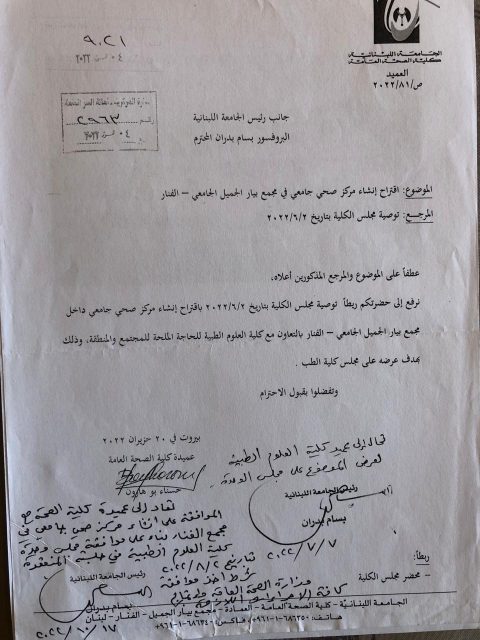 ٩٠٢١
٠٤
٢٠٢٢
الجامعة اللبنانية
كلية الصحة العامة
العميد
ص/٢٠٢٢/٨١
رقم ٢٩٦٣
٠٤ ٢٠٢٢
جانب رئيس الجامعة اللبنانية
البروفسور بسام بدران المحترم
الموضوع: اقتراح إنشاء مركز صحي جامعي في مجمع بيار الجميل الجامعي – الفنار
المرجع: توصية مجلس الكلية بتاريخ ٢٠٢٢/٦/٢
عطفاً على الموضوع والمرجع المذكورين أعلاه،
نرفع إلى حضرتكم ربطاً توصية مجلس الكلية بتاريخ ٢٠٢٢/٦/٢ باقتراح إنشاء مركز صحي جامعي داخل
مجمع بيار الجميل الجامعي – الفنار بالتعاون مع كلية العلوم الطبية للحاجة الملحة للمجتمع والمنطقة، وذلك
بهدف عرضه على مجلس كلية الطب .
وتفضلوا بقبول الاحترام
بيروت في ٢٠ حزيران ٢٠٢٢
عميدة كلية الصحة العامة
حسناء بو هارون
تحال إلى عميد كلية العلوم الطبية
لعرض الموضوع على مجلس الوحدة
رئيس الجامعة اللبنانية
بسام بدران
٢٠٢٢/٧/٧
تعاد إلى عميدة كلية الصحة مع
الموافقة على إنشاء مركز صحي جامعي في
مجمع الفنار بناء على موافقة مجلس وحدة
كلية العلوم الطبية في جلسته المنعقدة
بتاريخ ٢٠٢٢/٨/٢
شرط أخذ موافقة
وزارة الصحة العامة
كافة
رئيس الجامعة اللبنانية
بسام بدران
٢٠٢٢/١٠/١٧
ربطاً:
– محضر مجلس الكلية
الجامعة اللبنانية – كلية الصحة العامة – العمادة – مجمع بيار الجميل – الفنار – لبنان
هاتف: ٦٨٦٣٥٠-١-٩٦١+ / فاكس: ٦٨٦٣٤-١-٩٦١+